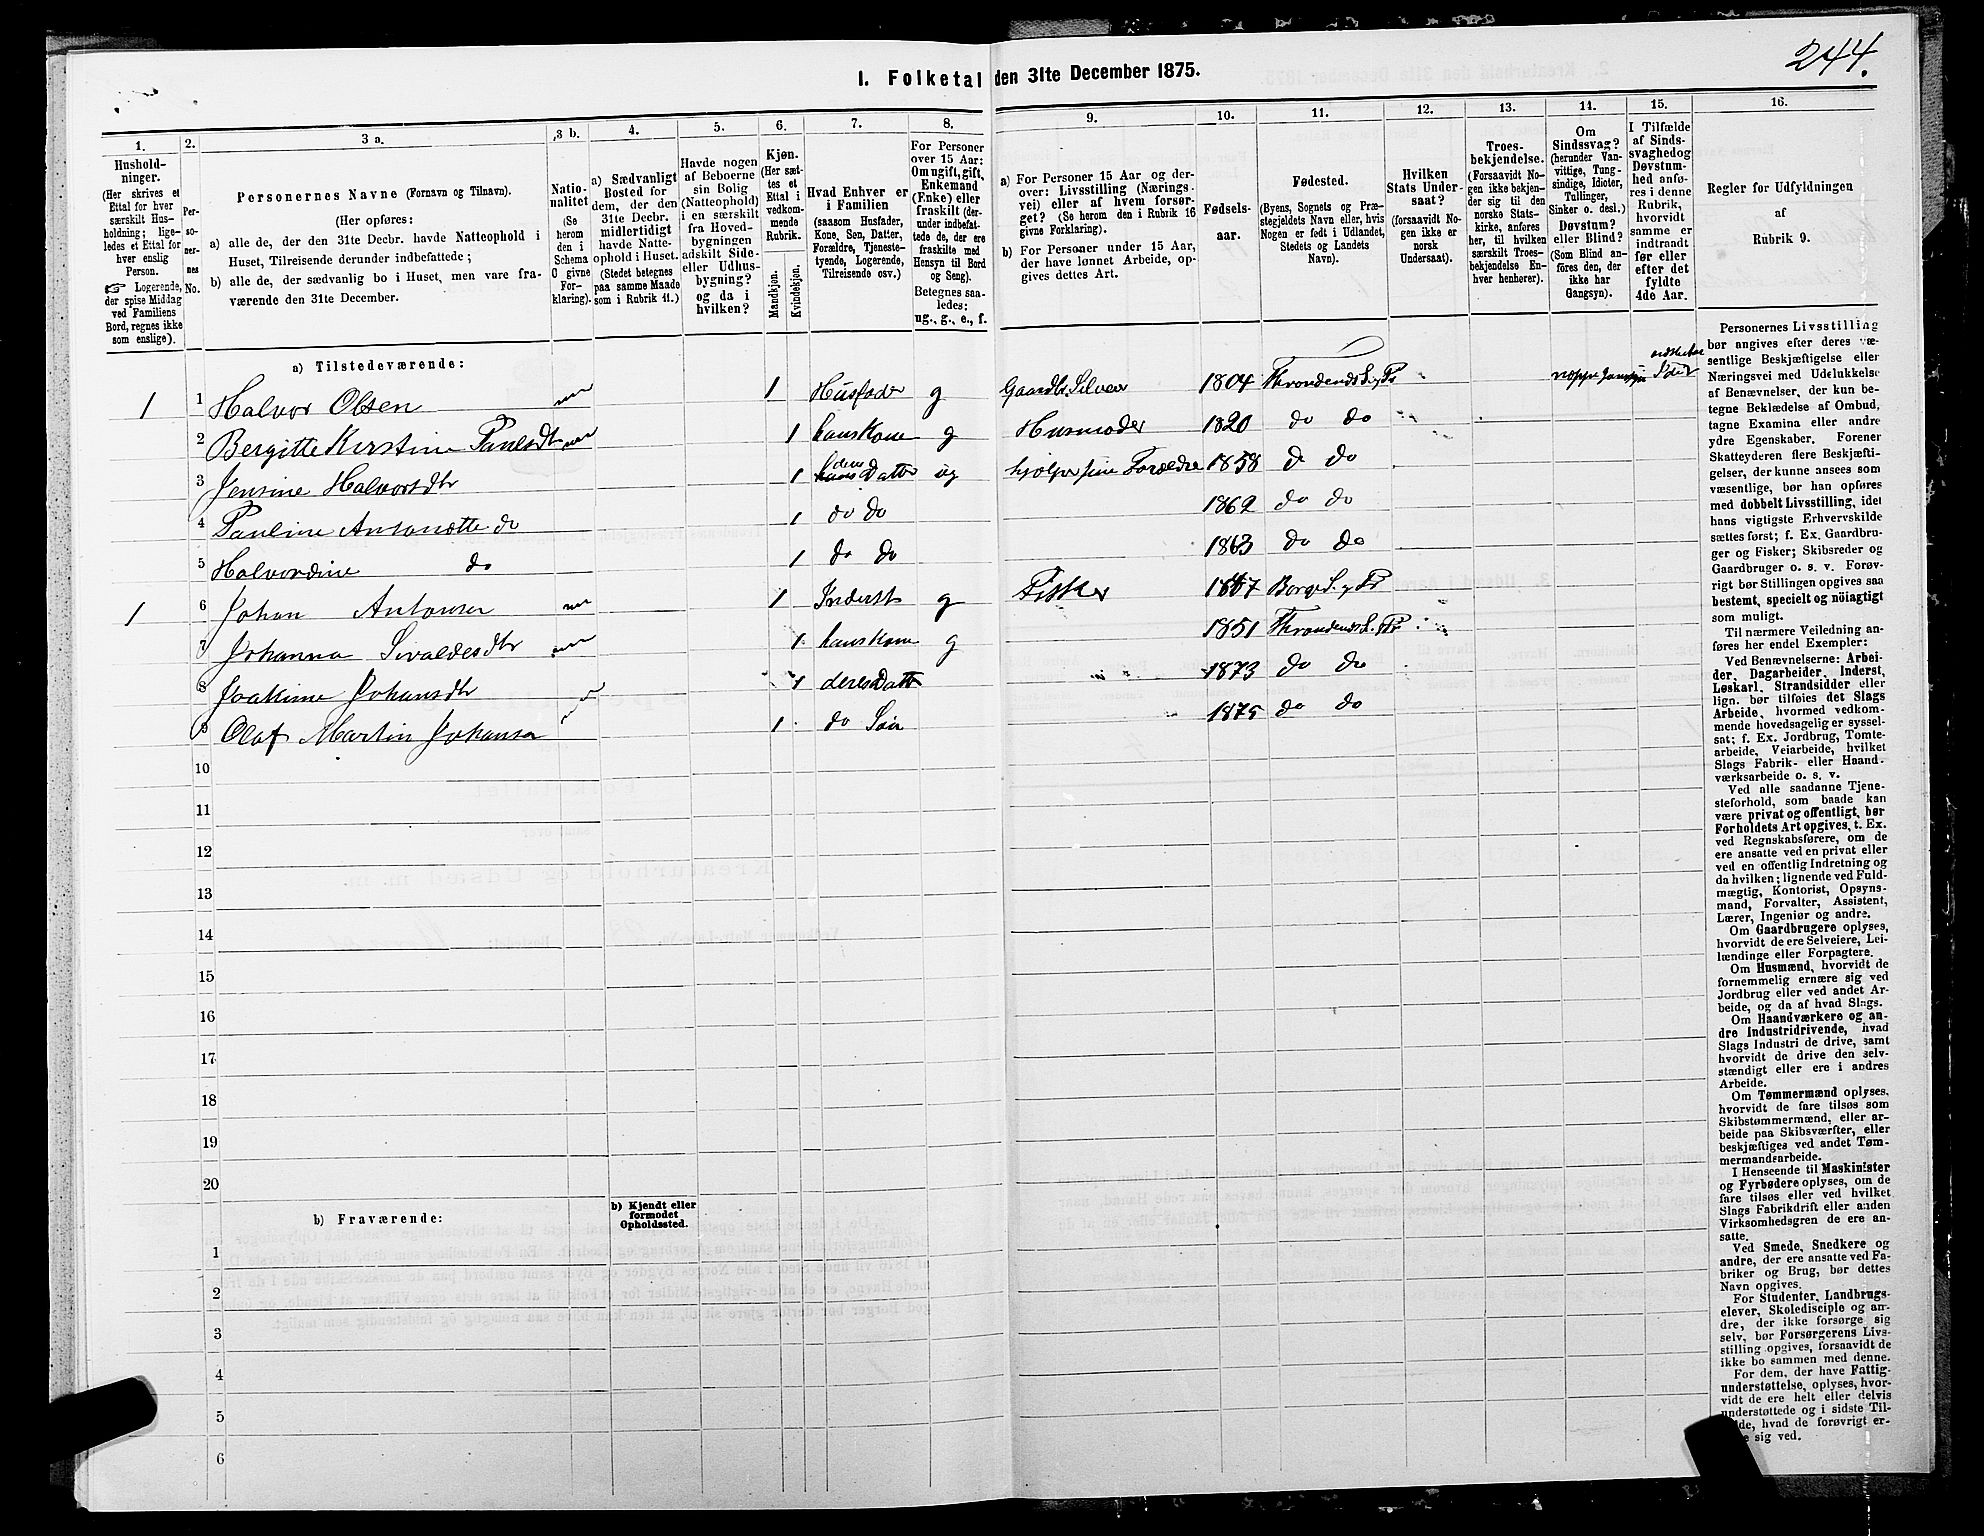 244.
I. Folketal den 31te December 1875.
1.
2.
3 a.
3 b.
4.
5.
6.
7.
8.
9.
10.
11.
12.
13.
14.
15.
16.
Hushold-
ninger.
(Her skrives et
Ettal for hver
særskilt Hus-
holdning; lige-
ledes et Ettal for
hver enslig
Person.
☞ Logerende,
der spise Middag
ved Familiens
Bord, regnes ikke
som enslige).
Per-
so-
ner-
nes
No.
Personernes Navne (Fornavn og Tilnavn).
(Her opføres:
a) alle de, der den 31te Decbr. havde Natteophold i
Huset, Tilreisende derunder indbefattede;
b) alle de, der sædvanlig bo i Huset, men vare fra-
værende den 31te December.
Natio-
nalitet
(Se
herom
den i
Schema
O givne
For-
klaring).
a) Sædvanligt
Bosted for
dem, der den
31te Decbr.
midlertidigt
havde Natte-
ophold i Huset.
(Stedet betegnes
paa samme Maade
som i Rubrik 11.)
Havde nogen
af Beboerne
sin Bolig
(Natteophold)
i en særskilt
fra Hoved-
bygningen
adskilt Side-
eller Udhus-
bygning?
og da i
hvilken?
Kjøn.
(Her sæt-
tes et
Ettal i
vedkom-
mende
Rubrik.
Mandkjøn.
Kvindekjøn.
Hvad Enhver er
i Familien
(saasom Husfader,
Kone, Søn, Datter,
Forældre, Tjeneste-
tyende, Logerende,
Tilreisende osv.)
For Personer
over 15 Aar:
Om ugift, gift,
Enkemand
(Enke) eller
fraskilt (der-
under indbefat-
tede de, der ere
fraskilte med
Hensyn til Bord
og Seng).
Betegnes saa-
ledes:
ug., g., e., f.
a) For Personer 15 Aar og der-
over: Livsstilling (Nærings-
vei) eller af hvem forsør-
get? (Se herom den i Rubrik 16
givne Forklaring).
b) For Personer under 15 Aar,
der have lønnet Arbeide, op-
gives dettes Art.
Fødsels-
aar.
Fødested.
(Byens, Sognets og Præ-
stegjeldets Navn eller, hvis
Nogen er født i Udlandet,
Stedets og Landets
Navn).
Hvilken
Stats Under-
saat?
(forsaavidt No-
gen ikke er
norsk
Undersaat).
Troes-
bekjendelse.
(Forsaavidt No-
gen ikke bekjen-
der sig til den
norske Stats-
kirke, anføres
her, til hvilken
særskilt Troes-
bekjendelse En-
hver henhører).
Om
Sindssvag?
(herunder Van-
vittige, Tung-
sindige, Idioter,
Tullinger,
Sinker o. desl.)
Døvstum?
eller Blind?
(Som Blind an-
føres den, der
ikke har
Gangsyn).
I Tilfælde
af Sinds-
svaghed og
Døvstum-
hed anfø-
res i denne
Rubrik,
hvorvidt
samme er
indtraadt
før eller
efter det
fyldte
4de Aar.
Regler for Udfyldningen
af
Rubrik 9.
a) Tilstedeværende:
1 1 Halvor Olsen nn 1 Husfader g Gaardb. Selveier 1804 Throndenes S. og Pr
2 Bergitte Kirstine Paulsdtr nn 1 hans Kone g Husmoder 1820 do do
3 Jensine Halvorsdtr 1 Datter ug hjelper sine Forældre 1858 d do
4 Pauline Antonette do 1 do do 1862 do do
5 Halvordine do 1 do do 1863 do do
1 6 Johan Antonsen nn 1 Inderst g Fisker Borge S. og Pr
7 Johanna Sivaldesdtr nn 1 hans Kone g 1851 Throndenes S. og Pr
8 Joakime Johansdtr 1 deres Datt 1873 do do
9 Olaf Martin Johansen 1 do Søn 1875 do do
10
11
12
13
14
15
16
17
18
19
20
b) Fraværende:
b) Kjendt eller
formodet
Opholdssted.
1
2
3
4
5
6
Personernes Livsstilling
bør angives efter deres væ-
sentlige Beskjæftigelse eller
Næringsvei med Udelukkelse
af Benævnelser, der kun be-
tegne Beklædelse af Ombud,
tagne Examina eller andre
ydre Egenskaber. Forener
Skatteyderen flere Beskjæfti-
gelser, der kunne ansees som
væsentlige, bør han opføres
med dobbelt Livsstilling, idet
hans vigtigste Erhvervskilde
sættes først; f. Ex. Gaardbru-
ger og Fisker; Skibsreder og
Gaardbruger o. s. v. Forøv-
rigt bør Stillingen opgives saa
bestemt, specielt og nöiagtigt
som muligt.
Til nærmere Veiledning an-
føres her endel Exempler:
Ved Benævnelserne: Arbei-
der, Dagarbeider, Inderst,
Løskarl, Strandsidder eller
lign. bør tilføies det Slags
Arbeide, hvormed vedkom-
mende hovedsagelig er syssel-
sat; f. Ex. Jordbrug, Tomte-
arbeide, Veiarbeide, hvilket
Slags Fabrik- eller Haand-
værksarbeide o. s. v.
Ved alle saadanne Tjene-
steforhold, som baade kan
være privat og offentligt, bør
Forholdets Art opgives, t. Ex.
ved Regnskabsførere, om de
ere ansatte ved en privat eller
ved en offentlig Indretning og
da hvilken; lignende ved Fuld-
mægtig, Kontorist, Opsyns-
mand, Forvalter, Assistent,
Lærer, Ingeniør og andre.
Om Gaardbrugere oplyses,
hvorvidt de ere Selveiere, Lei-
lændinge eller Forpagtere.
Om Husmænd, hvorvidt de
fornemmelig ernære sig ved
Jordbrug eller ved andet Ar-
beide, og da af hvad Slags.
Om Haandværkere og an-
dre Industridrivende, hvad
Slags Industri de drive, samt
hvorvidt de drive den selv-
stændigt eller ere i andres
Arbeide.
Om Tømmermænd oplyses,
hvorvidt de fare tilsøs som
Skibstømmermænd, eller ar-
beide paa Skibsværfter, eller
beskjæftiges ved andet Tøm-
mermandsarbeide.
I Henseende til Maskinister
og Fyrbødere oplyses, om de
fare tilsøs eller ved hvilket
Slags Fabrikdrift eller anden
Virksomhedsgren de ere an-
satte.
Ved Smede, Snedkere og
andre, der ere ansatte ved Fa-
briker og Brug, bør dettes
Navn opgives.
For Studenter, Landbrugs-
elever, Skoledisciple og an-
dre, der ikke forsørge sig
selv, bør Forsørgerens Livs-
stilling opgives, forsaavidt de
ikke bo sammen med denne.
For dem, der have Fattig-
understøttelse, oplyses, hvor-
vidt de ere helt eller delvis
understøttede og i sidste Til-
de, hvad de forøvrigt er-
sig ved.